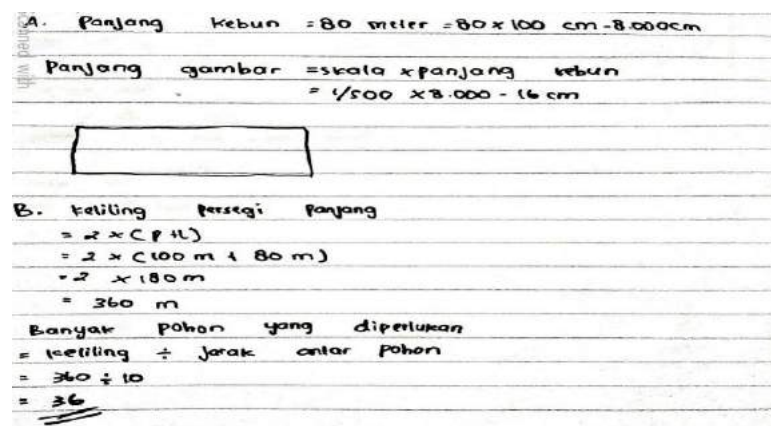 A. Panjang kebun = 80 meter = 80 x 100 cm - 8.000cm
Panjang gambar = skala x panjang kebun
= 1/500 x 8.000 - 16 cm
B. keliling persegi panjang
= 2 x (P + L)
= 2 x (100 m + 80 m)
= 2 x 180 m
= 360 m
Banyak pohon yang diperlukan
= keliling ÷ Jarak antar pohon
= 360 ÷ 10
= 36